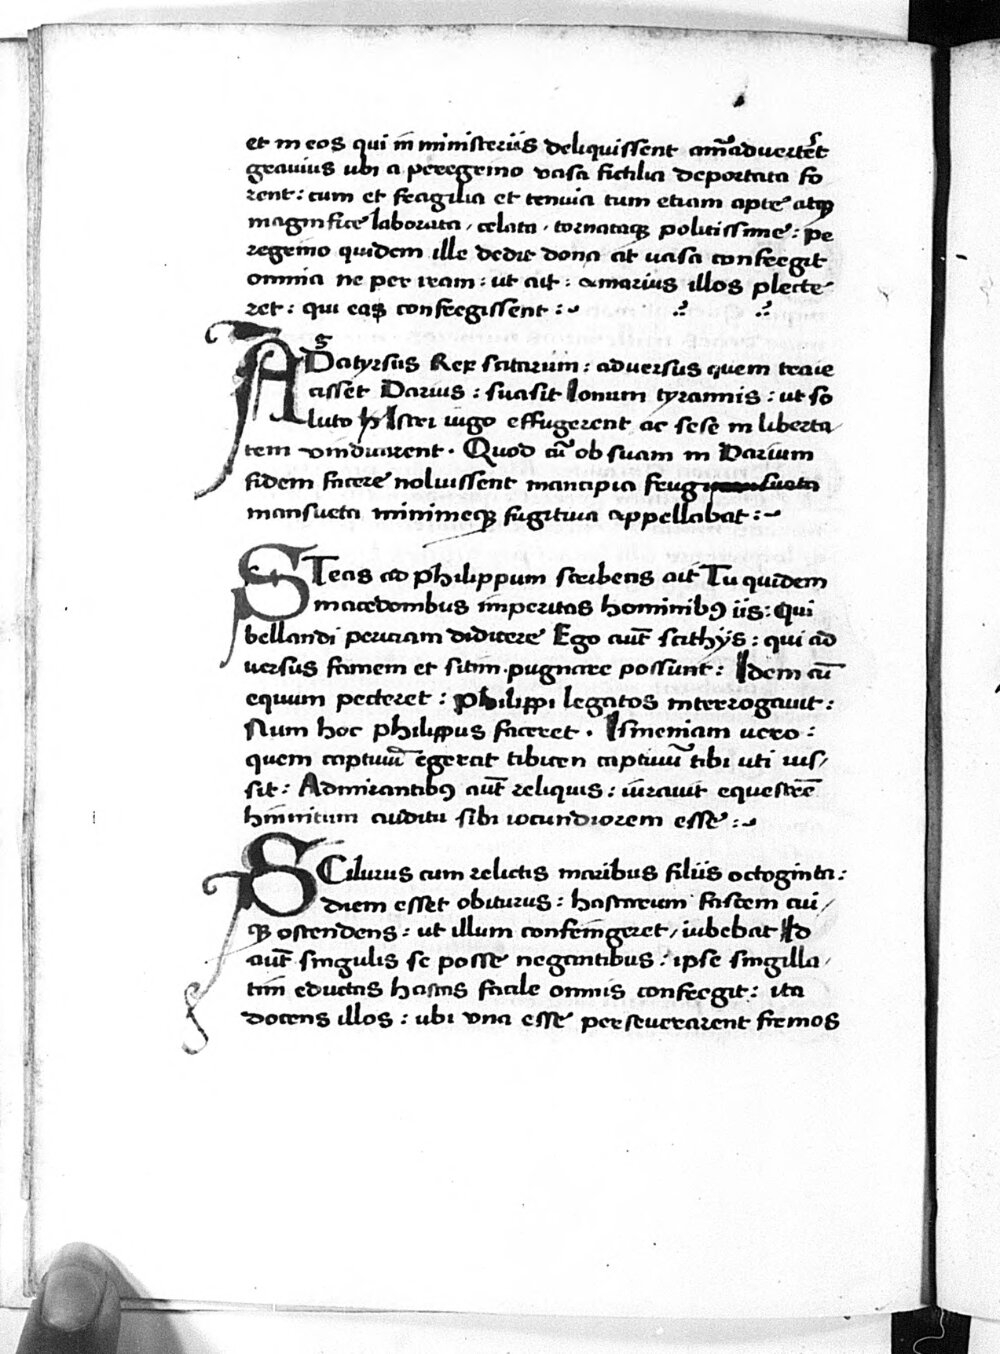 et in eos qui in ministeriis deliquissent aīaduertēt
grauius ubi a peregrino vasa fictilia deportata fo
rent: cum et fragilia et tenuia tum etiam apte atqꝫ
magnifice laborata, celata, tornataqꝫ politissime: pe
regrino quidem ille dedit dona at uasa confregit
omnia ne per iram: ut ait: amarius illos plecte
ret: qui eas confregissent:
ADatyrsus Rex scitarum: aduersus quem traie
cisset Darius: suasit Ionum tyrannis: ut so
luto Histri iugo effugerent ac sese in liberta
tem vindicarent. Quod cū ob suam in Darium
fidem facere noluissent mancipia frug
mansueta minimeqꝫ fugitiua appellabat:
STeas ad philippum scribens ait Tu quidem
macedonibus imperitas hominibꝰ iis: qui
bellandi periciam didicere Ego aūt scithijs: qui ad
versus famem et sitim pugnare possunt: Idem cū
equum pecteret: philippi legatos interrogauit:
Num hoc philippus faceret. Ismeniam uero:
quem captiuū egerat tibicen captiuū tibi uti ius,
sit: Admirantibꝰ aūt reliquis: iurauit equestrē
hinnitum auditu sibi iocundiorem esse:
SCilurus cum relictis maribus filiis octoginta:
diem esset obiturus: hastarum fascem cui,
qꝫ ostendens: ut illum confringeret, iubebat Id
aūt singulis se posse negantibus: ipse singilla,
tim eductas hastas facile omnis confregit: ita
docens illos: ubi vna esse perseuerarent firmos